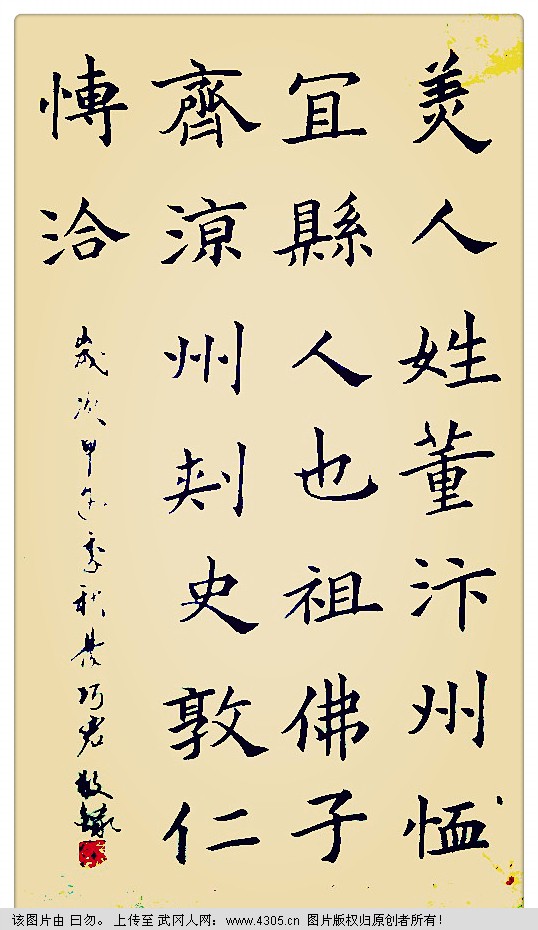 美人姓董汴州恤
冝縣人也祖佛子
齊涼州刺史敦仁
慱洽
歲次甲午季秋
敬錄
该图片由 曰勿。 上传至 武冈人网：www.4305.cn 图片版权归原创者所有！